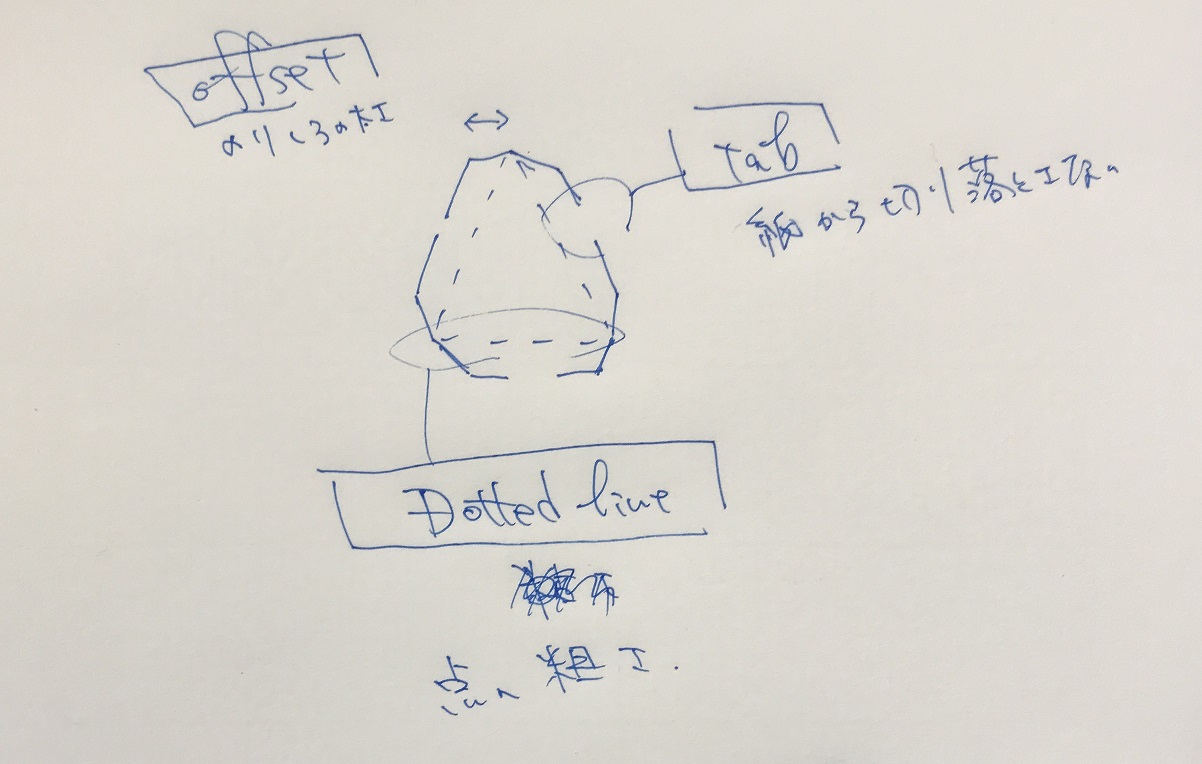 offset
のりしろの太さ
tab
紙から切り落とさない
Dotted line
点の粗さ.